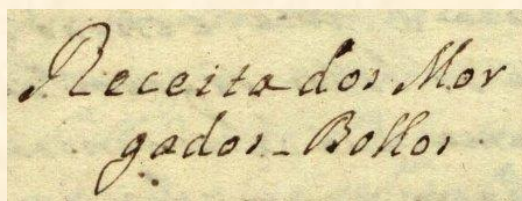 Receita dos Mor
gados - Bollos